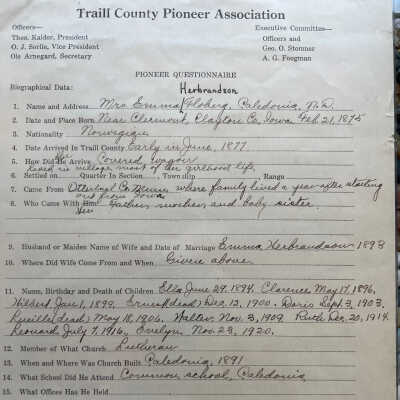 Traill County Pioneer Association
Officers—
Theo. Kaldor, President
O. J. Sorlie, Vice President
Ole Arnegard, Secretary
Executive Committee—
Officers and
Geo. O. Stomner
A. G. Foogman
PIONEER QUESTIONNAIRE
Biographical Data:
Herbrandson
1. Name and Address Mrs. Emma Floberg, Caledonia, N.D.
2. Date and Place Born Near Clermont, Clayton Co., Iowa Feb. 21, 1875
3. Nationality Norwegian
4. Date Arrived In Traill County Early in June, 1877.
5. How Did He Arrive Covered wagon
lived in village most of her girlhood life
6. Settled on Quarter In Section Township Range
7. Came From Ottertail Co. Minn. where family lived a year after starting
out from Iowa
8. Who Came With Him Father, mother and baby sister.
Her
9. Husband or Maiden Name of Wife and Date of Marriage Emma Herbrandson 1893
10. Where Did Wife Come From and When Given above
11. Name, Birthday and Death of Children Ella June 29, 1894. Clarence May 17, 1896.
Hilbert Jan. 1, 1899. Ernest (dead) Dec. 12, 1900. Doris Sept. 3, 1903.
Lucille (dead) May 18, 1906. Walter, Nov. 3, 1909. Ruth Dec. 20, 1914.
Leonard July 7, 1916. Evelyn Nov. 23, 1920.
12. Member of What Church Lutheran
13. When and Where Was Church Built Caledonia, 1891
14. What School Did He Attend Common school, Caledonia
15. What Offices Has He Held